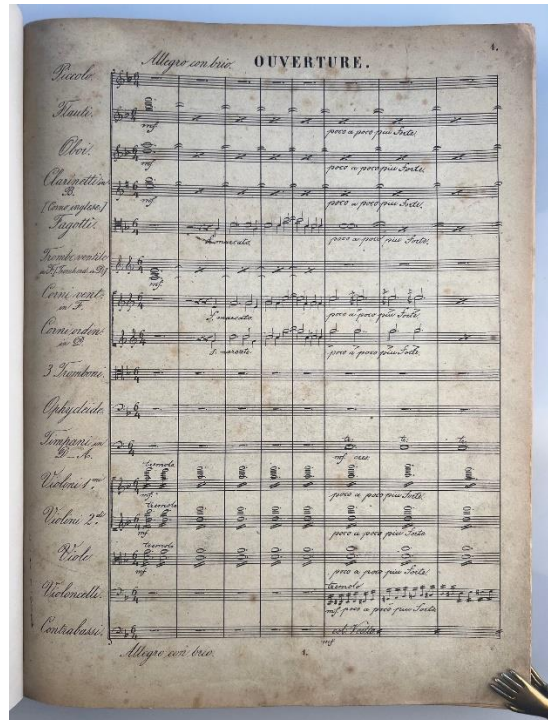 1.
Allegro con brio. OUVERTURE.
Piccolo.
Flauti.
mf
poco a poco piu Forte.
Oboi.
mf
poco a poco piu Forte.
Clarinetti in
B.
mf
poco a poco piu Forte.
(Corno inglese.)
Fagotti.
marcato.
poco a poco piu Forte.
Trombe ventile
mf
Corni vent:
in F.
f. marcato.
poco a poco piu Forte
Corni orden:
in D
f. marcato.
poco a poco piu Forte
3 Tromboni.
Ophycleide.
Timpani in
D _ A.
tr. tr. tr.
mf
Violini 1mi
tremolo
mf.
poco a poco piu Forte
Violini 2di
tremolo
mf
poco a poco piu Forte
Viole
tremolo
mf
poco a poco piu Forte
Violoncelli.
tremolo
mf poco a poco piu Forte
Contrabassi.
mf
Allegro con brio. 1.